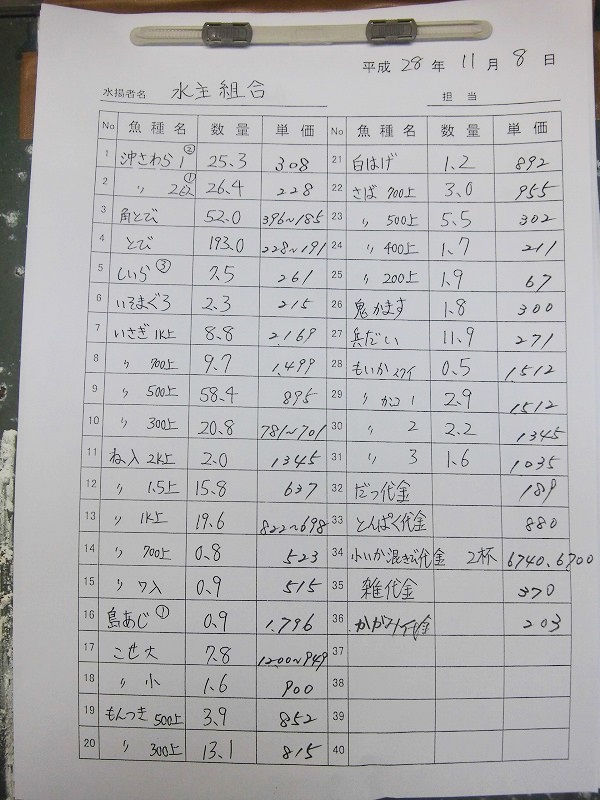 平成 28 年 11 月 8 日
水揚者名 水主組合 担当
No 魚種名 数量 単価 No 魚種名 数量 単価
1 沖さわら1 ② 25.3 308 21 白はげ 1.2 892
2 〃 2入 ① 26.4 228 22 さば 700上 3.0 955
3 角とび 52.0 396~185 23 〃 500上 5.5 302
4 とび 193.0 228~191 24 〃 400上 1.7 211
5 しいら ③ 7.5 261 25 〃 200上 1.9 67
6 いそまぐろ 2.3 215 26 鬼かます 1.8 300
7 いさぎ 1K上 8.8 2.169 27 兵だい 11.9 271
8 〃 700上 9.7 1.499 28 もいか スワイ 0.5 1512
9 〃 500上 58.4 895 29 〃 カゴ 1 2.9 1512
10 〃 300上 20.8 781~701 30 〃 2 2.2 1345
11 ね入 2K上 2.0 1345 31 〃 3 1.6 1035
12 〃 1.5上 15.8 637 32 だつ代金 189
13 〃 1K上 19.6 822~698 33 とんぱく代金 880
14 〃 700上 0.8 523 34 小いか混ぎ代金 2杯 6740、6700
15 〃 ワ入 0.9 515 35 雑代金 370
16 島あじ ① 0.9 1.796 36 代金 203
17 こせ大 7.8 1200~949 37
18 〃 小 1.6 900 38
19 もんつき 500上 3.9 852 39
20 〃 300上 13.1 815 40